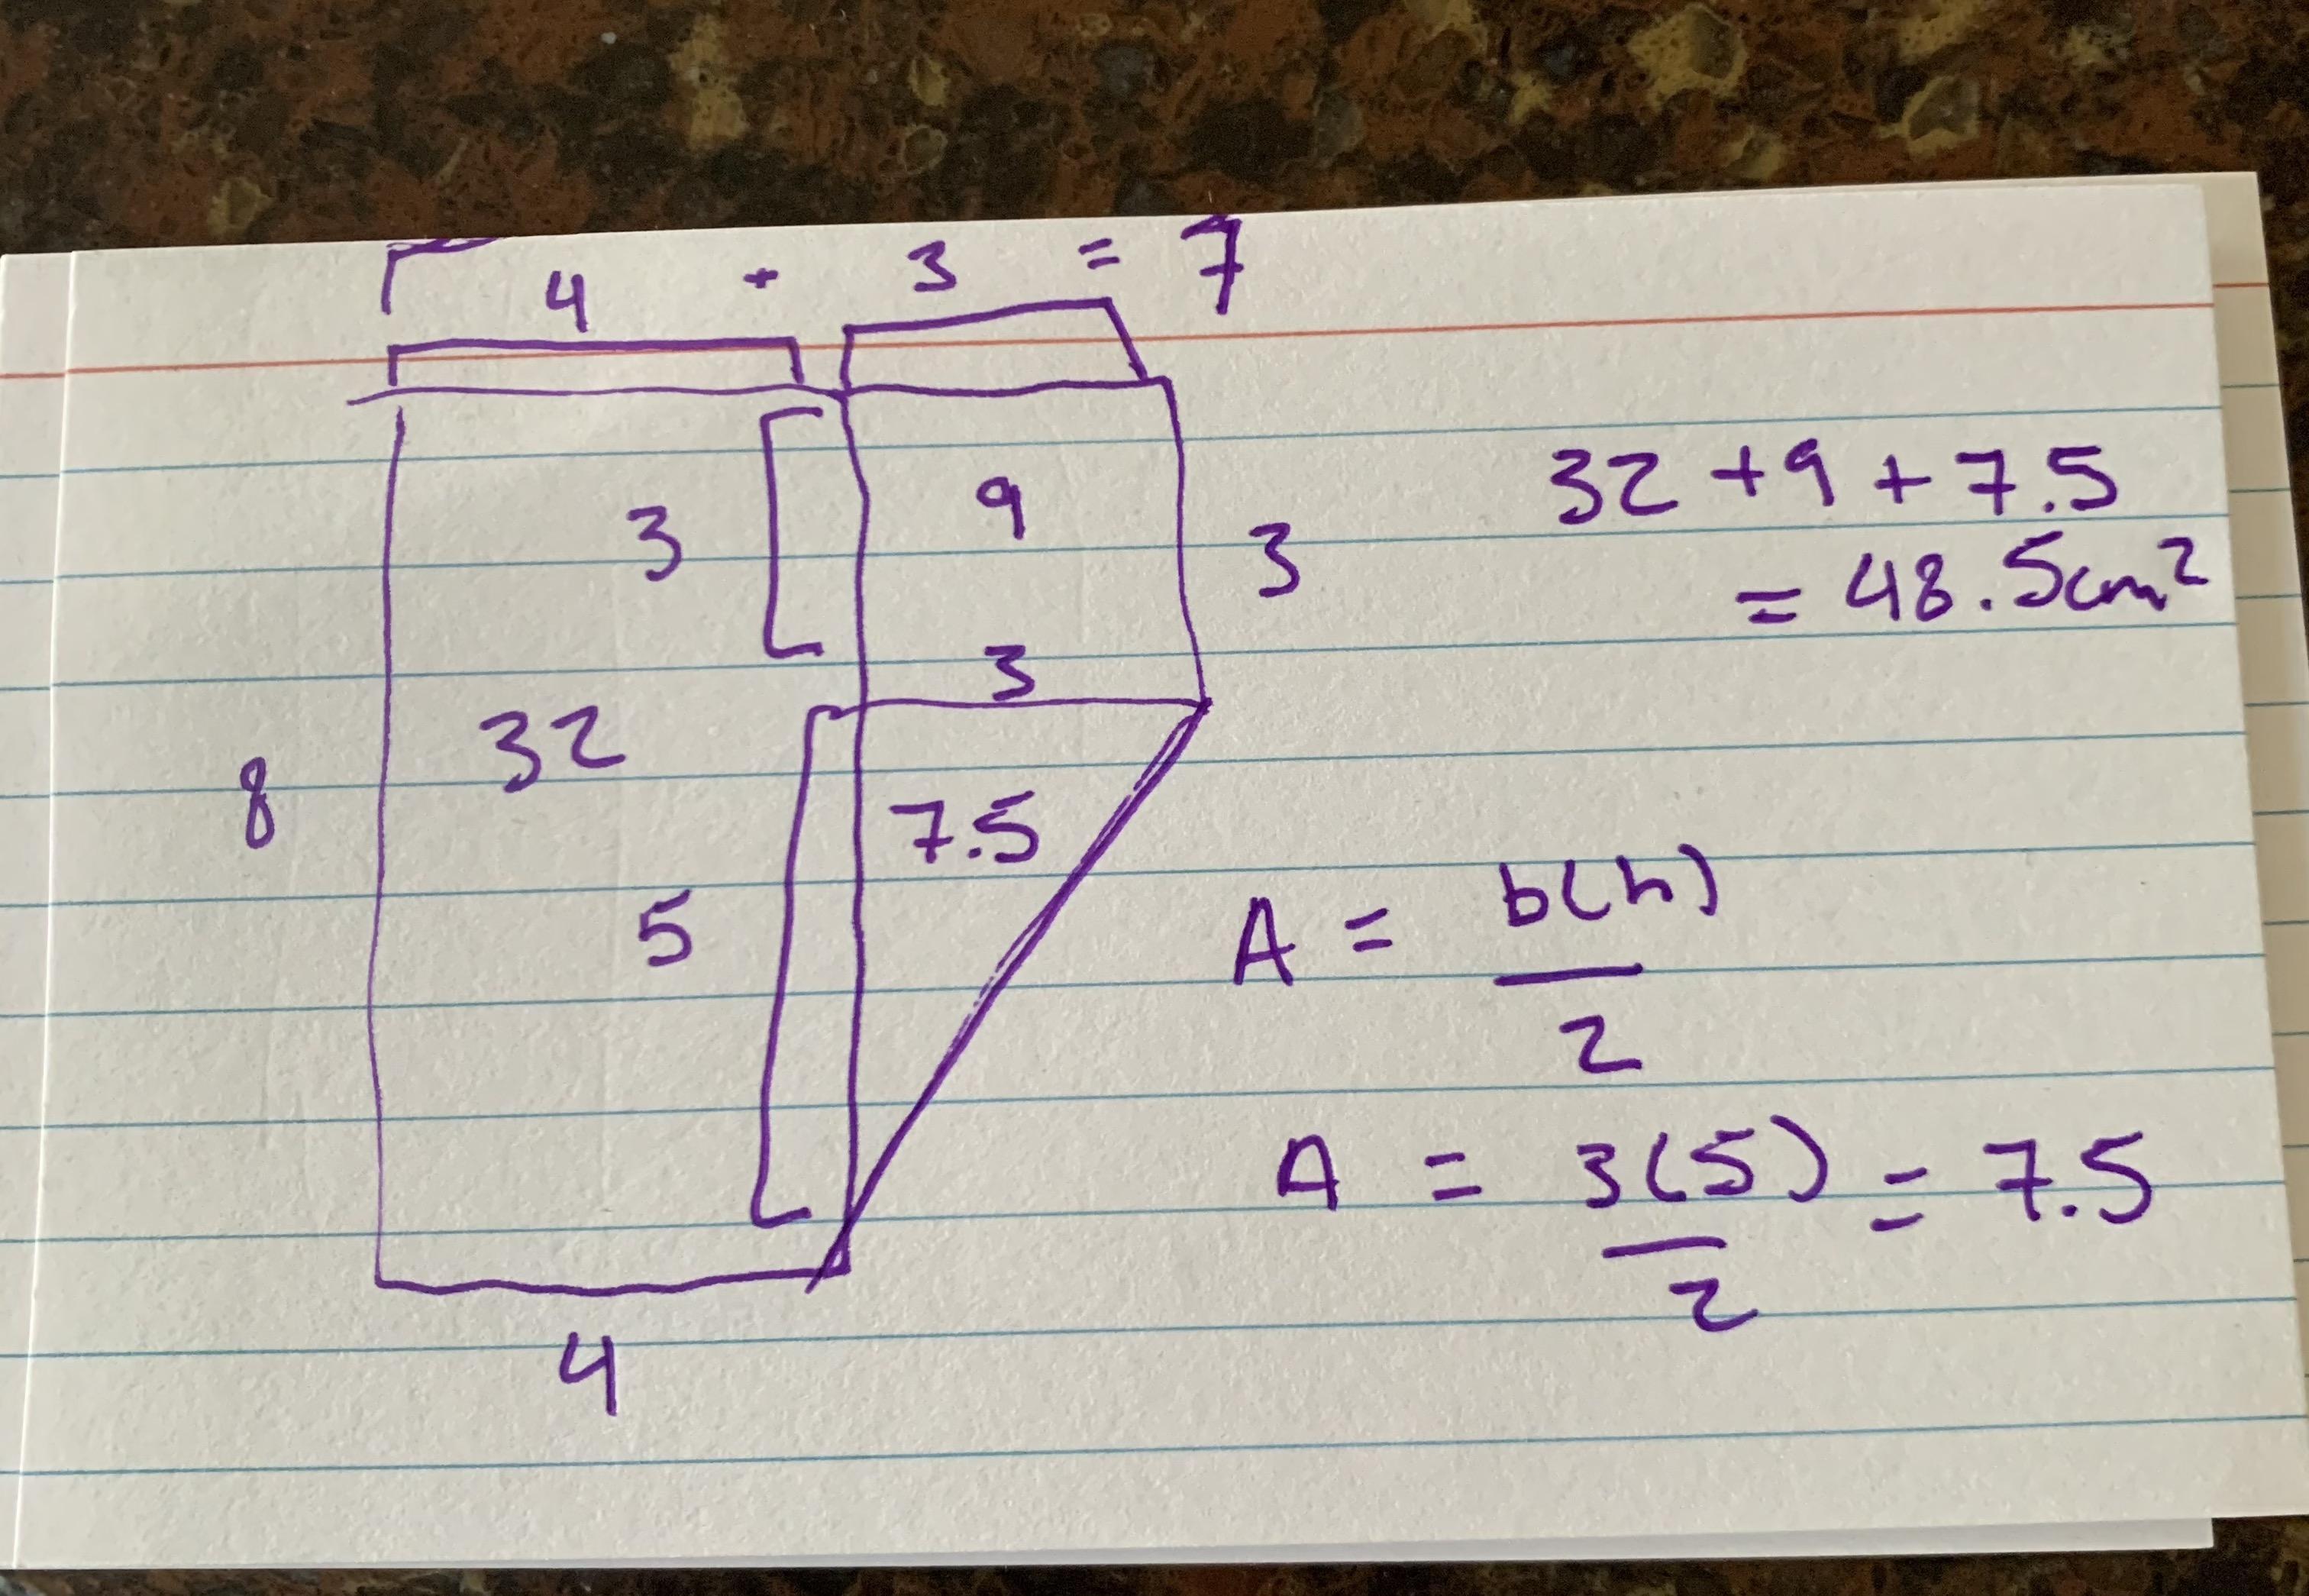 4 + 3 = 7
3
9
3
32 + 9 + 7.5
= 48.5cm²
3
32
8
7.5
5
A = b(h)
2
A = 3(5) = 7.5
2
4